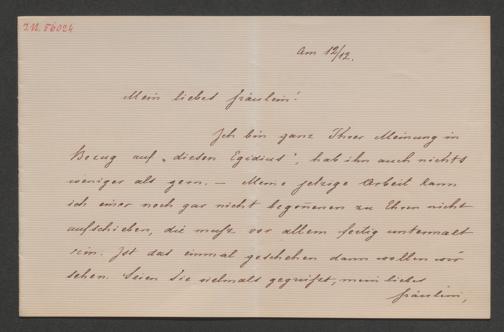 I.N. 56024
Am 12/12.
Mein liebes Fräulein!
Ich bin ganz Ihrer Meinung in
Bezug auf „diesen Egidius", hab ihn auch nichts
weniger als gern. — Meine jetzige Arbeit kann
ich einer noch gar nicht begonnenen zu Ehren nicht
aufschieben, die muß vor allem fertig untermalt
sein. Ist das einmal geschehen dann wollen wir
sehen. Seien Sie vielmals gegrüßt, mein liebes
Fräulein,